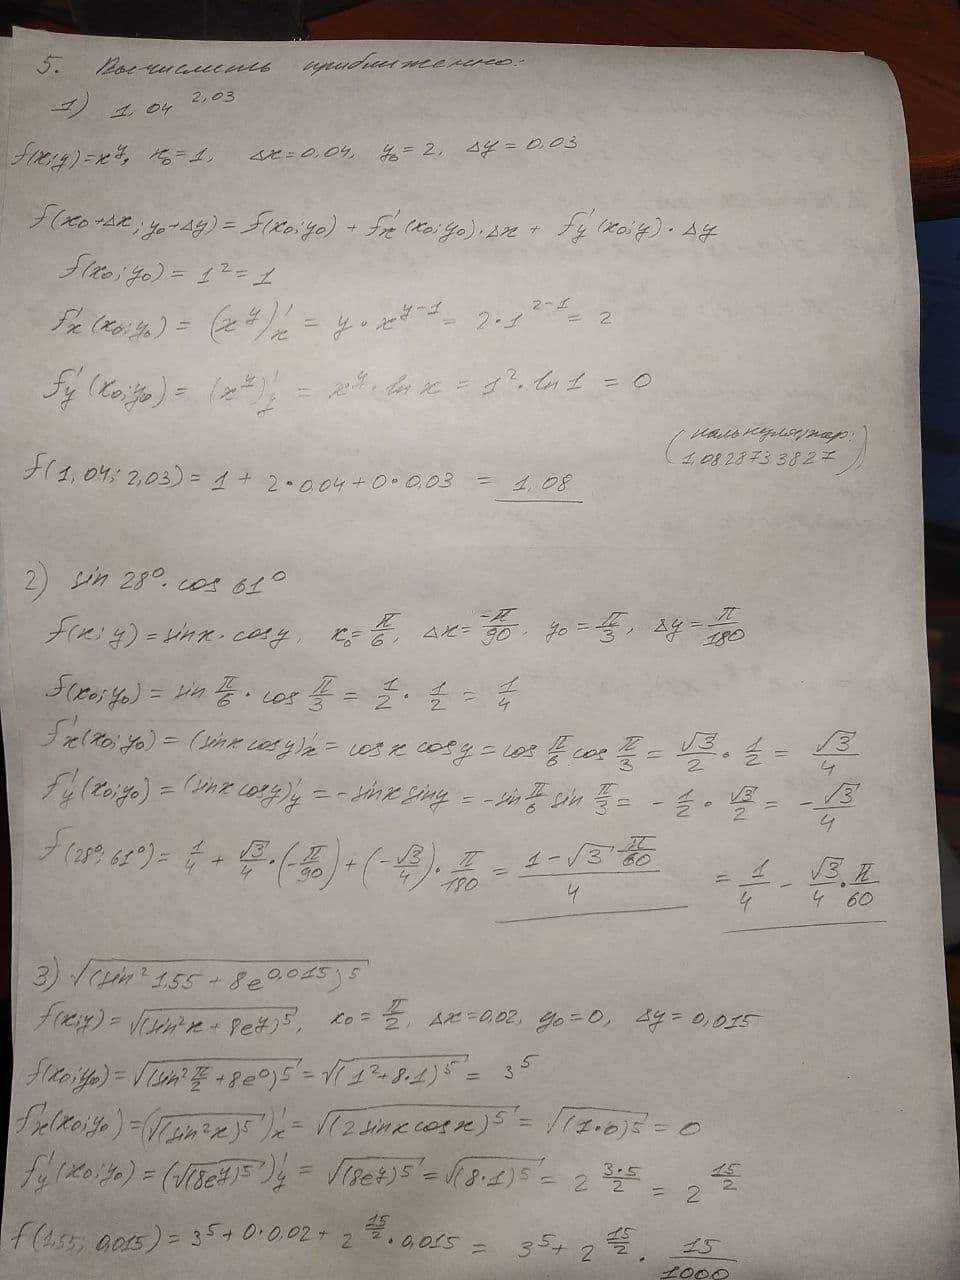 5. Вычислить приближенно:
1) 1,04^2,03
f(x;y)=x^y, x₀=1, Δx=0,04, y₀=2, Δy=0,03
f(x₀+Δx; y₀+Δy)=f(x₀;y₀)+f'x(x₀;y₀)·Δx+f'y(x₀;y)·Δy
f(x₀;y₀)=1²=1
f'x(x₀;y₀)=(x^y)'x=y·x^(y-1)=2·1^(2-1)=2
f'y(x₀;y₀)=(x^y)'y=x^y·ln x=1²·ln1=0
(калькулятор:
1,0828733827)
f(1,04; 2,03)=1+2·0,04+0·0,03=1,08
2) sin 28°·cos 61°
f(x;y)=sinx·cosy, x₀=π/6, Δx=-π/90, y₀=π/3, Δy=π/180
f(x₀;y₀)=sin π/6·cos π/3=1/2·1/2=1/4
f'x(x₀;y₀)=(sinx cosy)'x=cos x cosy=cos π/6 cos π/3=√3/2·1/2=√3/4
f'y(x₀;y₀)=(sinx cosy)'y=-sinx siny=-sin π/6 sin π/3=-1/2·√3/2=-√3/4
f(28°; 61°)=1/4+√3/4·(-π/90)+(-√3/4)·π/180=(1-√3·π/60)/4=1/4-√3/4·π/60
3) √(sin²1,55+8e^0,015)^5
f(x;y)=√(sin²x+8e^y)^5, x₀=π/2, Δx=0,02, y₀=0, Δy=0,015
f(x₀;y₀)=√(sin²π/2+8e⁰)^5=√(1²+8·1)^5=3^5
f'x(x₀;y₀)=(√(sin²x)^5)'x=√(2sinxcosx)^5=√(1·0)^5=0
f'y(x₀;y₀)=(√(8e^y)^5)'y=√(8e^y)^5=√(8·1)^5=2^(3·5/2)=2^(15/2)
f(1,55; 0,015)=3^5+0·0,02+2^(15/2)·0,015=3^5+2^(15/2)·15/1000